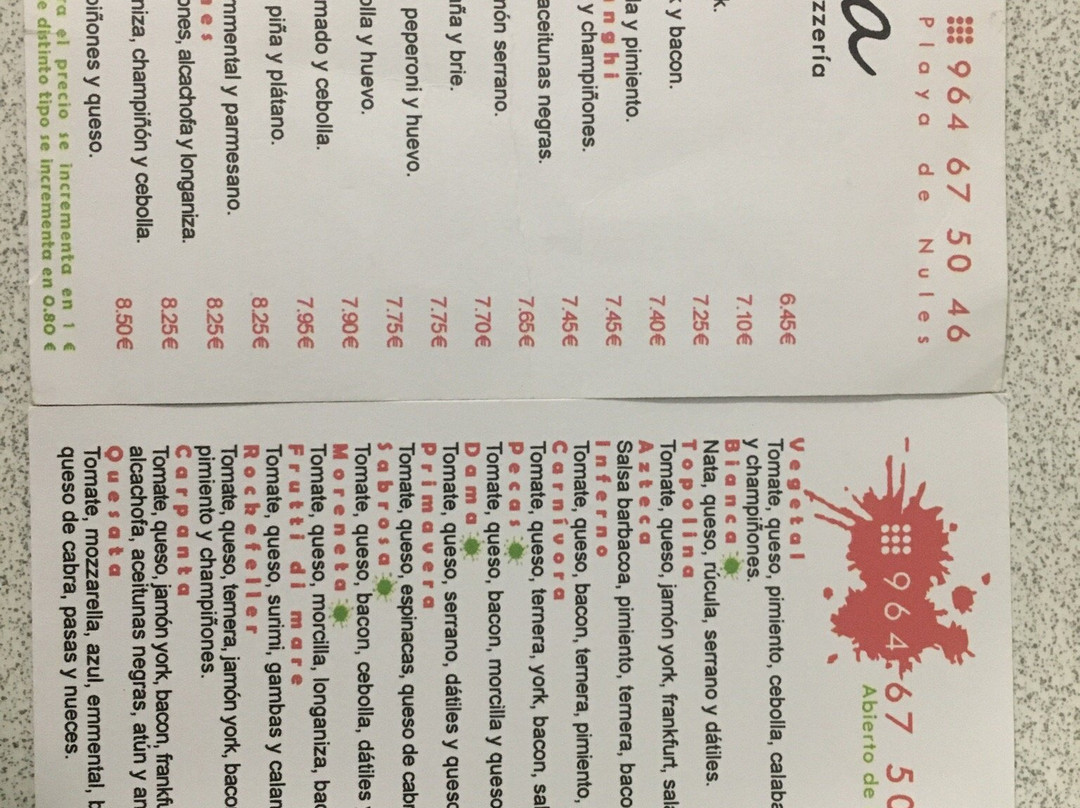 964 67 50 46
Playa de Nules
a
zzería
6.45€
7.10€
k.
7.25€
k y bacon.
7.40€
la y pimiento.
nghi 7.45€
y champiñones.
7.45€
aceitunas negras.
7.65€
nón serrano.
7.70€
aña y brie.
7.75€
peperoni y huevo.
7.75€
olla y huevo.
7.90€
mado y cebolla.
7.95€
piña y plátano.
8.25€
mmental y parmesano.
es 8.25€
ones, alcachofa y longaniza.
8.25€
niza, champiñón y cebolla.
8.50€
piñones y queso.
ra el precio se incrementa en 1 €
e distinto tipo se incrementa en 0.80 €
964 67 50
Abierto de
Vegetal
Tomate, queso, pimiento, cebolla, calaba
y champiñones.
Bianca
Nata, queso, rúcula, serrano y dátiles.
Topolina
Tomate, queso, jamón york, frankfurt, sala
Azteca
Salsa barbacoa, pimiento, ternera, baco
Inferno
Tomate, queso, bacon, ternera, pimiento,
Carnívora
Tomate, queso, ternera, york, bacon, sal
Pecas
Tomate, queso, bacon, morcilla y queso
Dama
Tomate, queso, serrano, dátiles y queso
Primavera
Tomate, queso, espinacas, queso de cabr
Sabrosa
Tomate, queso, bacon, cebolla, dátiles y
Moreneta
Tomate, queso, morcilla, longaniza, bac
Frutti di mare
Tomate, queso, surimi, gambas y calan
Rockefeller
Tomate, queso, ternera, jamón york, baco
pimiento y champiñones.
Carpanta
Tomate, queso, jamón york, bacon, frankfu
alcachofa, aceitunas negras, atún y an
Quesata
Tomate, mozzarella, azul, emmental, b
queso de cabra, pasas y nueces.